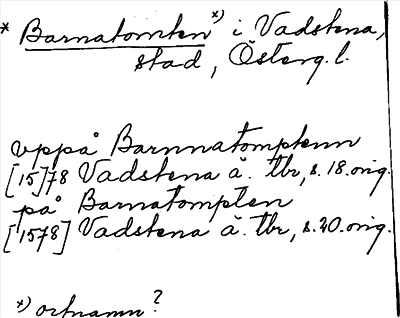 * Barnatomten *) i Vadstena,
stad, Österg.l.
uppå Barnnatomptenn
[15]78 Vadstena ä. tbr, s. 18. orig.
på Barnatompten
[1578] Vadstena ä. tbr, s. 20. orig.
*) ortnamn?